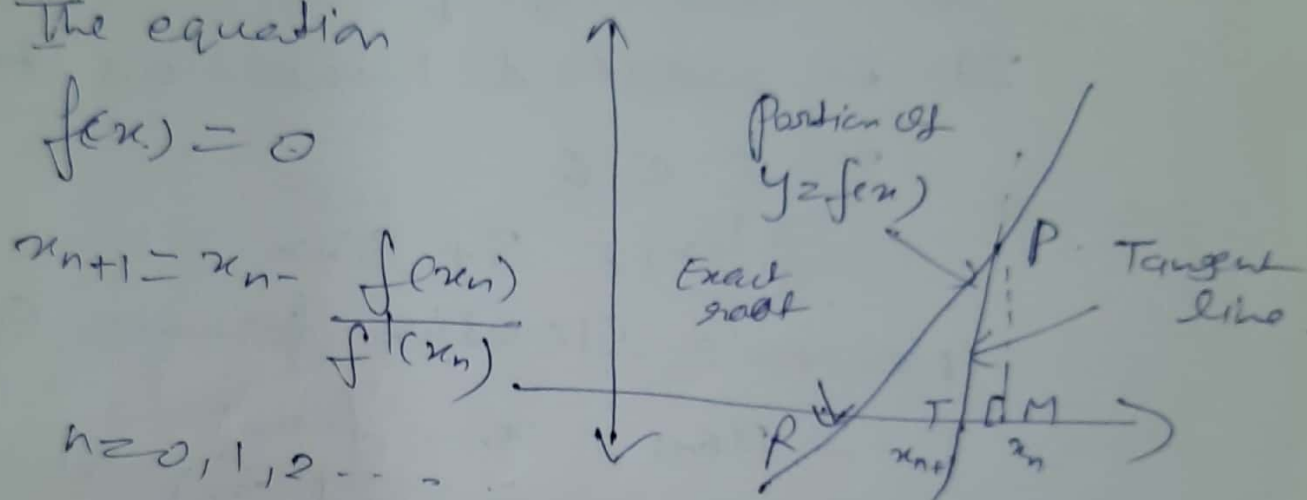 The equation
f(x) = 0
xn+1 = xn - f(xn)
f'(xn)
n=0,1,2 - - - .
Portion of
y=f(x)
Exact
root
P
Tangent
line
R
T
d
M
xn+1
xn